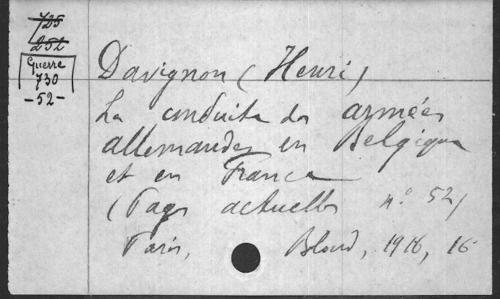 725
252
Guerre
730
-52-
Davignon (Henri)
La conduite des armées
allemandes en Belgique
et en France
(Pages actuelles n° 52)
Paris, Bloud, 1916, 16